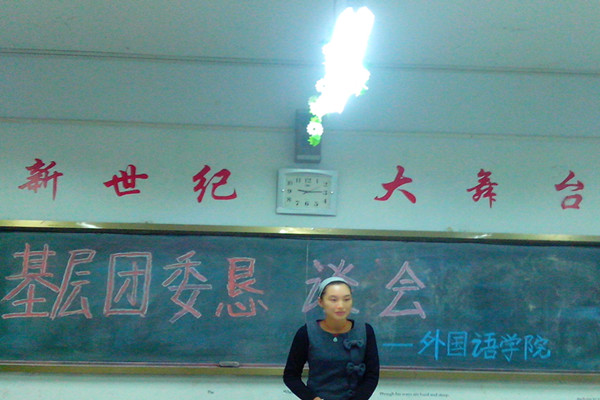 新世纪 大舞台
基层团委恳谈会
—外国语学院